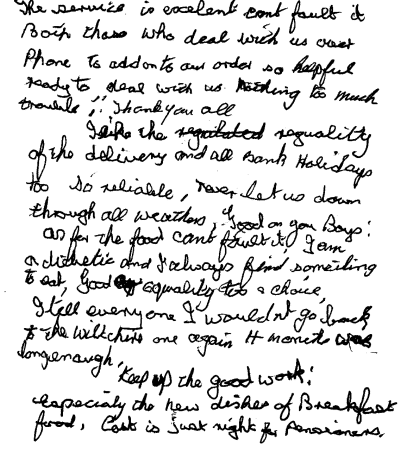 The service is excelent cont fault it
Both those who deal with us over
Phone to add onto our order so helpful
ready to deal with us. Nothing too much
trouble,; Thank you all
I like the regulated reguality
of the delivery and all Bank Holidays
too so reliable, never let us down
through all weathers, Good on you Boys!
as for the food cant fault it I am
a diabetic and I always find something
to eat, Good equality too & choice,
I tell everyone I wouldnt go back
to the Wiltshire one again 4 months was
longenough,
Keep up the good work!
especialy the new dishes of Breakfast
food, Cost is Just right for Pensioners.